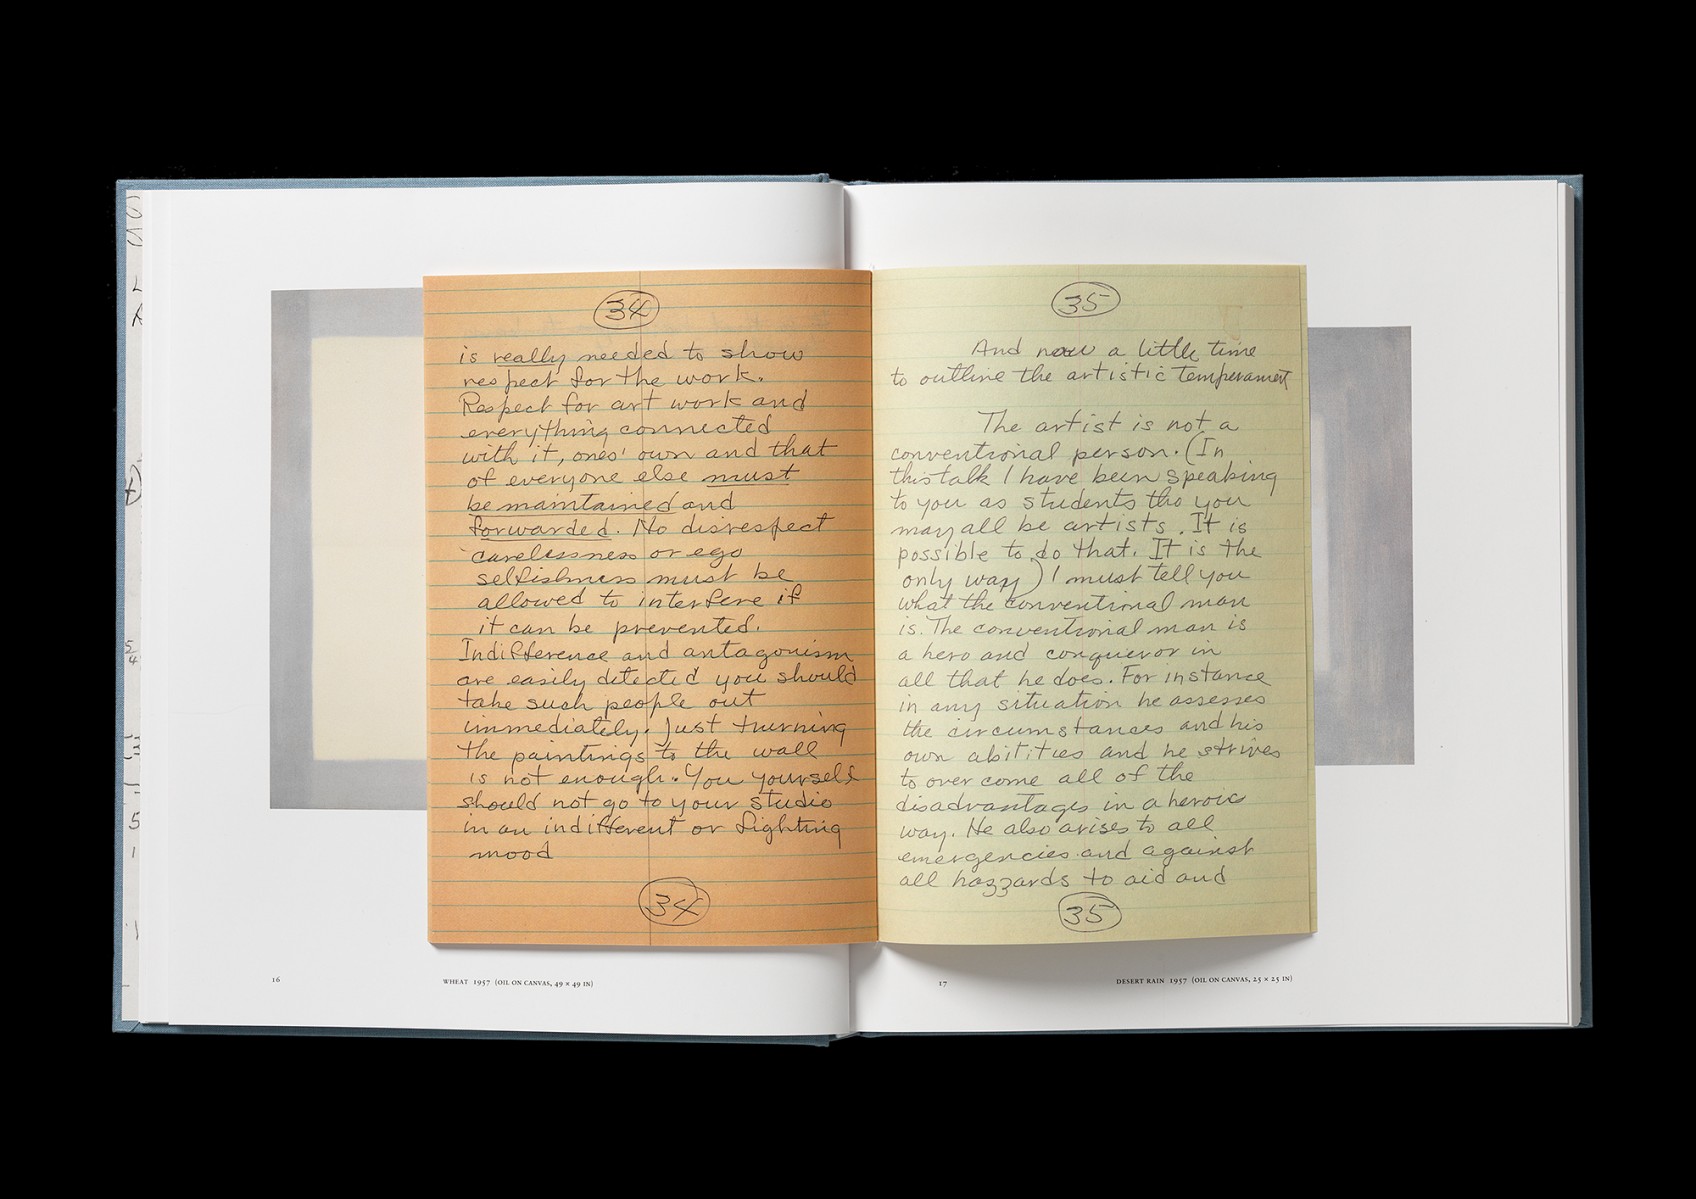 34
is really needed to show
respect for the work.
Respect for art work and
everything connected
with it, ones' own and that
of everyone else must
be maintained and
forwarded. No disrespect
carelessness or ego
selfishness must be
allowed to interfere if
it can be prevented.
Indifference and antagonism
are easily detected you should
take such people out
immediately. Just turning
the paintings to the wall
is not enough. You yourself
should not go to your studio
in an indifferent or fighting
mood
34
35
And now a little time
to outline the artistic temperament
The artist is not a
conventional person. (In
this talk I have been speaking
to you as students tho you
may all be artists. It is
possible to do that. It is the
only way) I must tell you
what the conventional man
is. The conventional man is
a hero and conqueror in
all that he does. For instance
in any situation he assesses
the circumstances and his
own abilities and he strives
to over come all of the
disadvantages in a heroic
way. He also arises to all
emergencies and against
all hazzards to aid and
35
16
WHEAT 1957 (OIL ON CANVAS, 49 × 49 IN)
17
DESERT RAIN 1957 (OIL ON CANVAS, 25 × 25 IN)